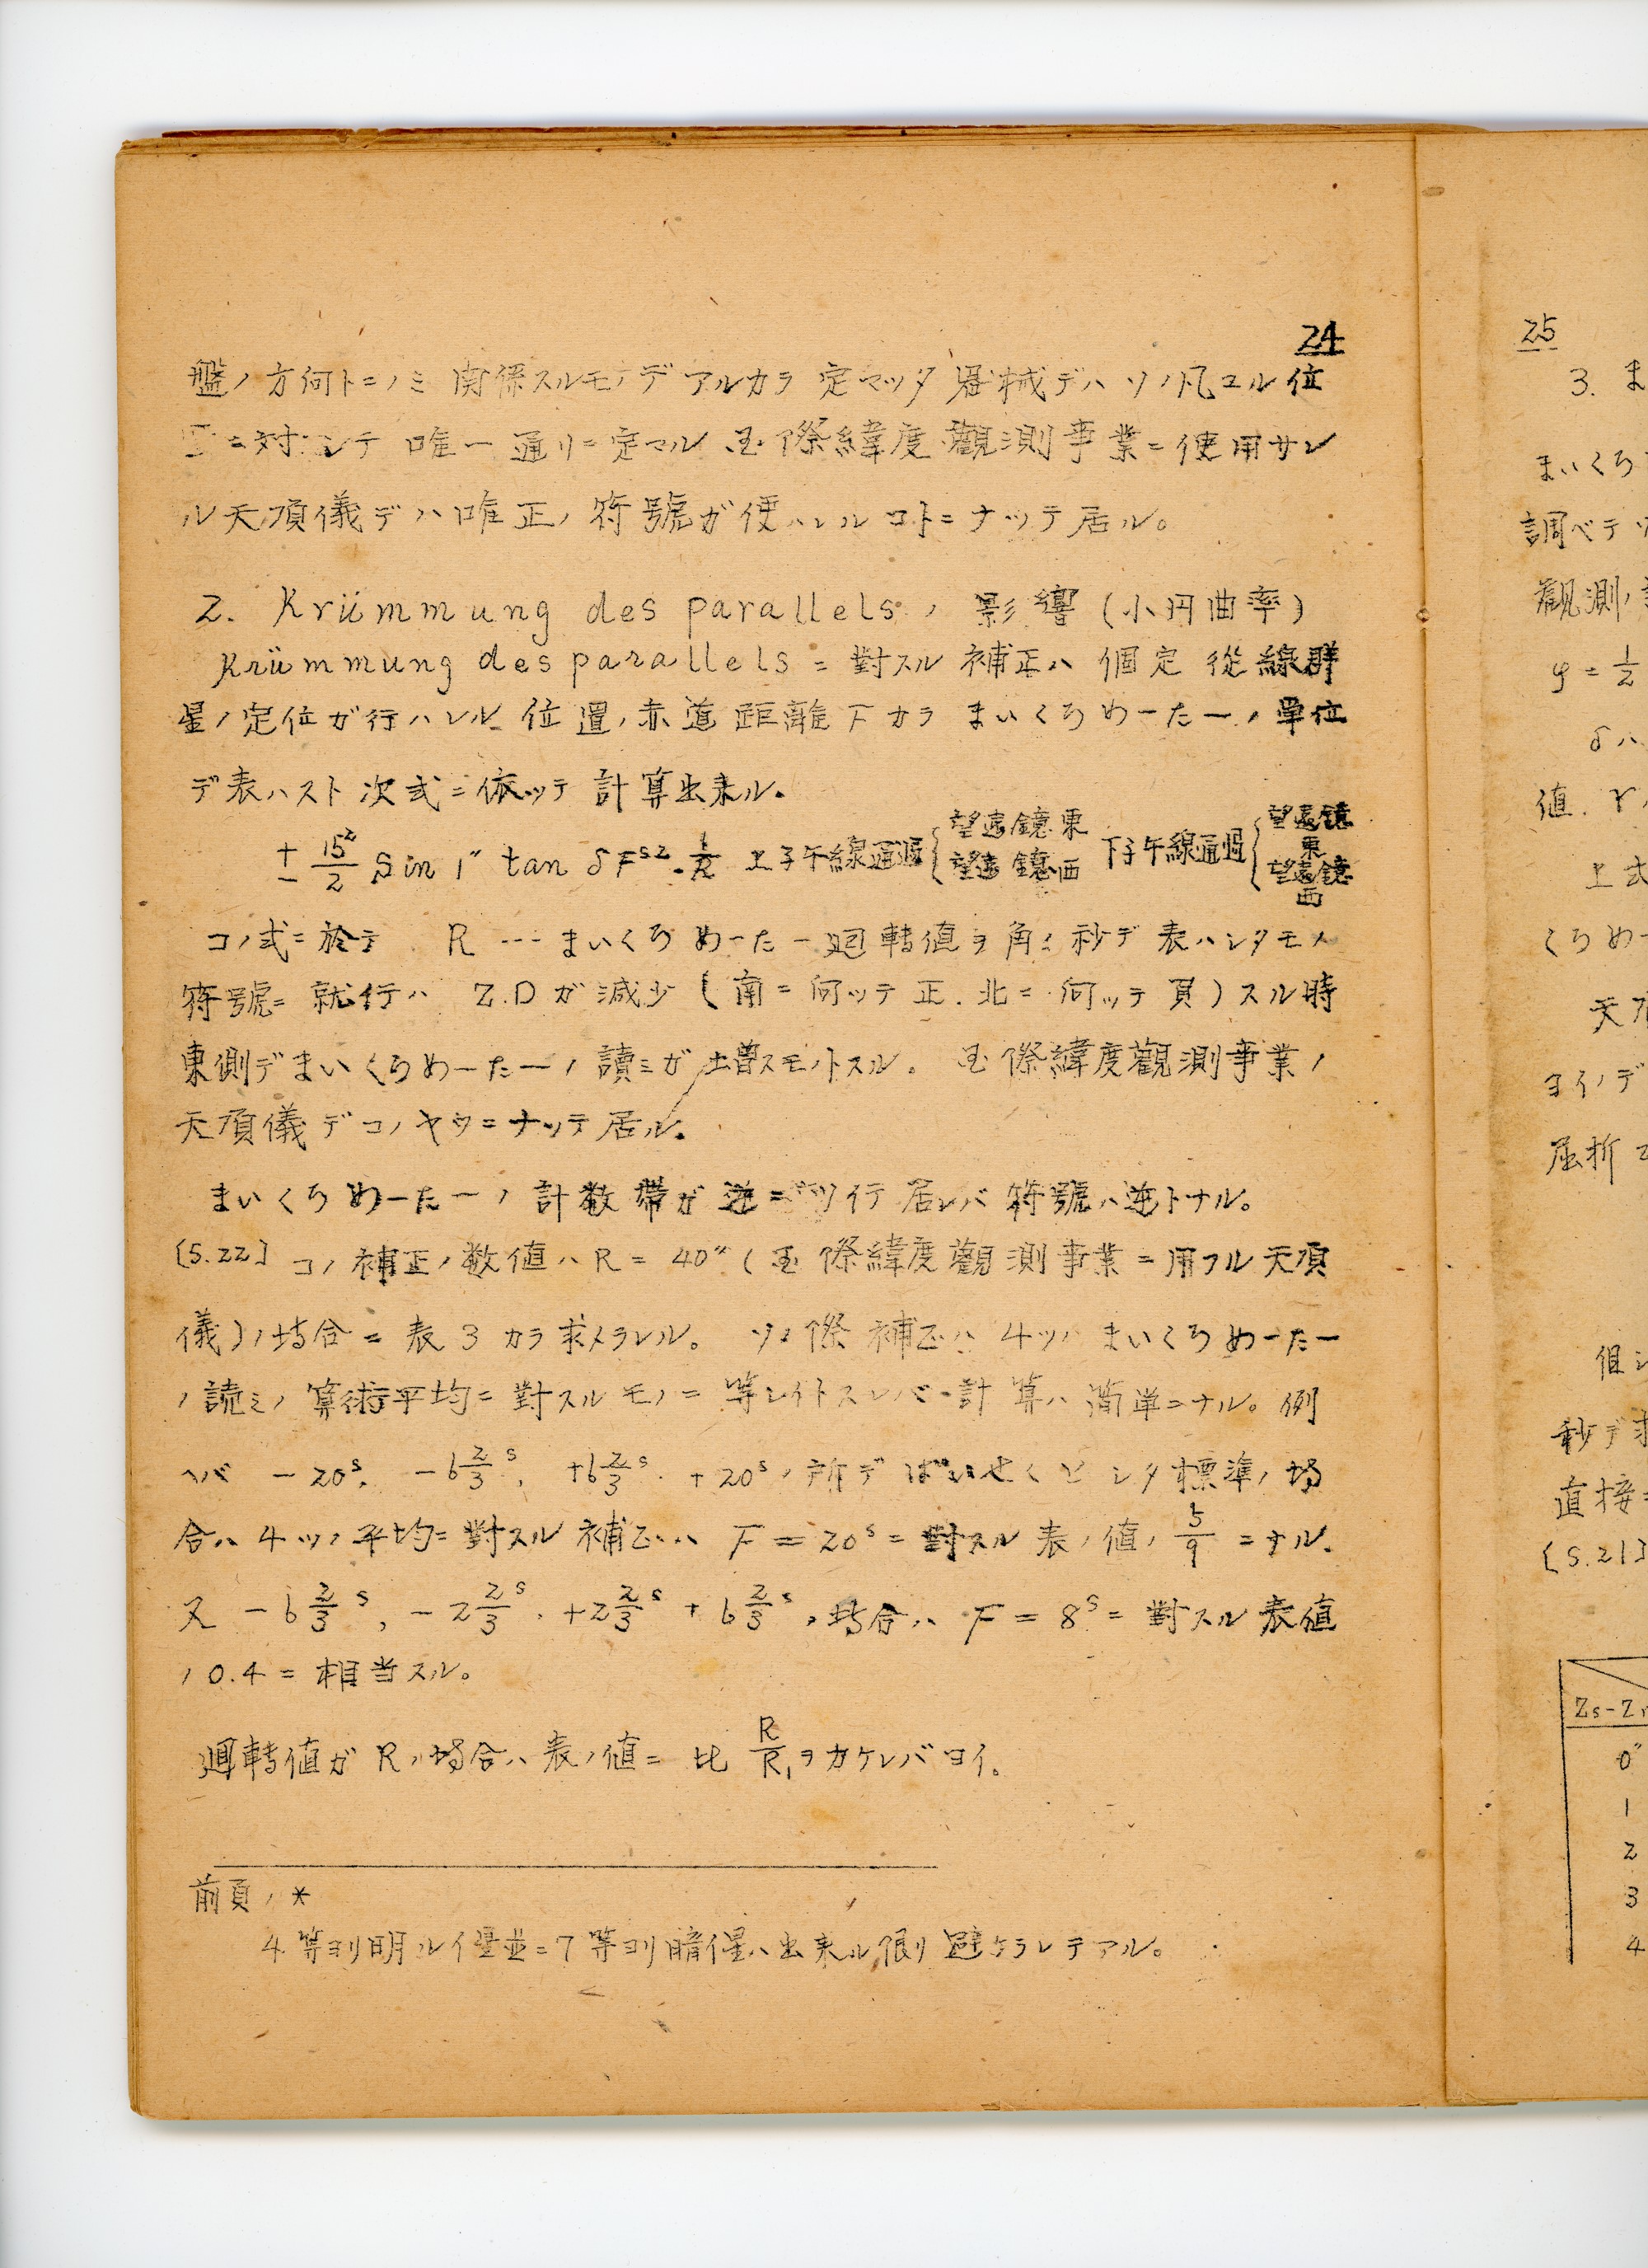 24
盤ノ方向トニノミ 関係スルモノデアルカラ 定マッタ器械デハソノ凡ユル位
ニ対シテ 唯一通リニ定マル 国際緯度観測事業ニ使用サレ
ル天頂儀デハ唯正ノ符號ガ使ハレルコトニナッテ居ル。
2. Krümmung des parallels ノ 影響 (小円曲率)
Krümmung des parallels ニ對スル 補正ハ 個定 從線群
星ノ定位ガ行ハレル 位置ノ赤道距離 F カラ まいくろめーたーノ單位
デ表ハスト 次式ニ依ッテ 計算出来ル.
± 15²/2 Sin 1″ tan δ F^S2 . 1/R 上子午線通過 { 望遠鏡東 望遠鏡西 下子午線通過 { 望遠鏡東 望遠鏡西
コノ式ニ於テ R --- まいくろめーたー廻轉値ヲ角ノ秒デ表ハシタモノ
符號ニ就行ハ Z.D ガ減少 (南ニ向ッテ正. 北ニ向ッテ負) スル時
東側デまいくろめーたーノ讀ミガ増スモノトスル。 国際緯度觀測事業ノ
天頂儀デコノヤウニナッテ居ル.
まいくろめーたーノ計数帯ガ逆ニツイテ居レバ符號ハ逆トナル。
[S.22] コノ補正ノ数値ハ R = 40″ (国際緯度觀測事業ニ用フル天頂
儀)ノ場合ニ表 3 カラ求メラレル。 ソノ際補正ハ 4ツノまいくろめーたー
ノ読ミノ算術平均ニ對スルモノニ等シイトスレバ計算ハ簡単ニナル。例
ヘバ －20ˢ, －6 2/3ˢ, +6 2/3ˢ. +20ˢノ所デばいせくとシタ標準ノ場
合ハ 4ツノ平均ニ對スル補正ハ F = 20ˢニ對スル表ノ値ノ 5/9 ニナル.
又 －6 2/3ˢ, －2 2/3ˢ. +2 2/3ˢ + 6 2/3ˢノ場合ハ F = 8ˢニ對スル表値
ノ0.4ニ相当スル。
廻轉値ガ Rノ場合ハ表ノ値ニ 比 R/R₁ヲカケレバヨイ。
前頁ノ *
4等ヨリ明ルイ星並ニ7等ヨリ暗イ星ハ出来ル限リ避ケラレテアル。
25
3. ま
まいくろ
調ベテソ
觀測ノ
φ = 1/2
δハ
値. r
上式
くろめー
天頂
ヨイノデ
屈折
但シ
秒デ求
直接
[S.21]
Zs-Zn
0″
1
2
3
4